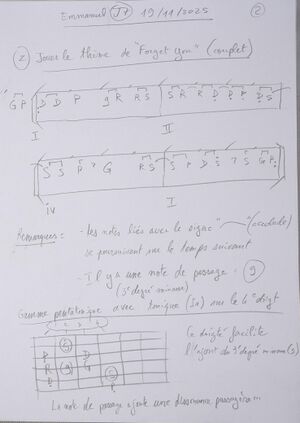 Emmanuel J+ 19/11/2025 2
2 Jouer le thème de "Forget you" (complet)
G P D D P g R R S S R R D P P S
I II
S S P 7 G R S S P D S 7 S G P
IV I
Remarques : - les notes liées avec le signe " " (accolade)
se poursuivent sur le temps suivant
- Il y a une note de passage : g
(3ce degré mineur)
Gamme pentatonique avec tonique (Sn) sur le 6e doigt
1 2 3 4
Ce doigté facilite
l'ajout du 3e degré mineur (g)
P R D S g D G S P
La note de passage ajoute une dissonance passagère...